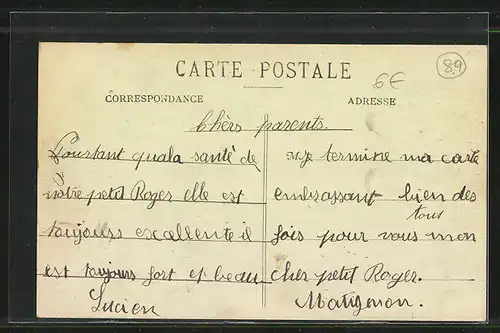 CARTE POSTALE
6€
89
CORRESPONDANCE
ADRESSE
Chèrs parents.
Pourtant quala santé de
nôtre petit Roger elle est
toujours excellente il
est toujours fort et beau
Lucien
Je termine ma carte
embrassant bien des
tous
fois pour vous mon
cher petit Roger.
Matignon.